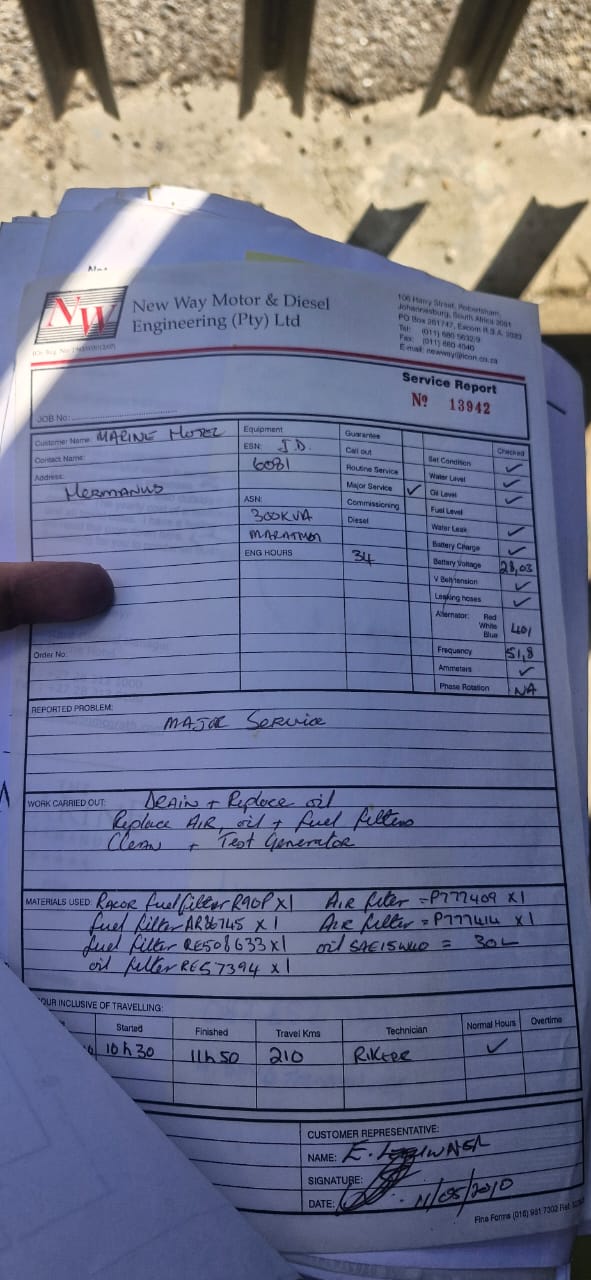 NW
New Way Motor & Diesel
Engineering (Pty) Ltd
106 Harry Street, Robertsham,
Johannesburg, South Africa 2091
Service Report
No 13942
JOB No:
Customer Name: MARINE HOTEL
Contact Name:
Address:
HERMANUS
Order No:
Equipment
ESN: J.D.
6081
ASN:
300KVA
MARATHON
ENG HOURS 34
Guarantee
Call out
Routine Service
Major Service ✓
Commissioning
Diesel
Checked
Set Condition ✓
Water Level ✓
Oil Level ✓
Fuel Level
Water Leak ✓
Battery Charge ✓
Battery Voltage 28,03
V Belt tension ✓
Leaking hoses ✓
Alternator: Red
White 401
Blue
Frequency 51,8
Ammeters ✓
Phase Rotation NA
REPORTED PROBLEM:
MAJOR Service
WORK CARRIED OUT: DRAIN + Replace oil
Replace AIR, oil + fuel filters
Clean + Test Generator
MATERIALS USED: RACOR fuel filter R90P X1 AIR filter = P777409 X1
fuel filter AR86745 X 1 AIR filter = P777414 X 1
fuel filter RE508633 X1 oil SAE15W40 = 30L
oil filter RE57394 X 1
OUR INCLUSIVE OF TRAVELLING:
Started Finished Travel Kms Technician Normal Hours Overtime
10h30 11h50 210 ✓
CUSTOMER REPRESENTATIVE:
NAME: E.
SIGNATURE:
DATE: 11/05/2010